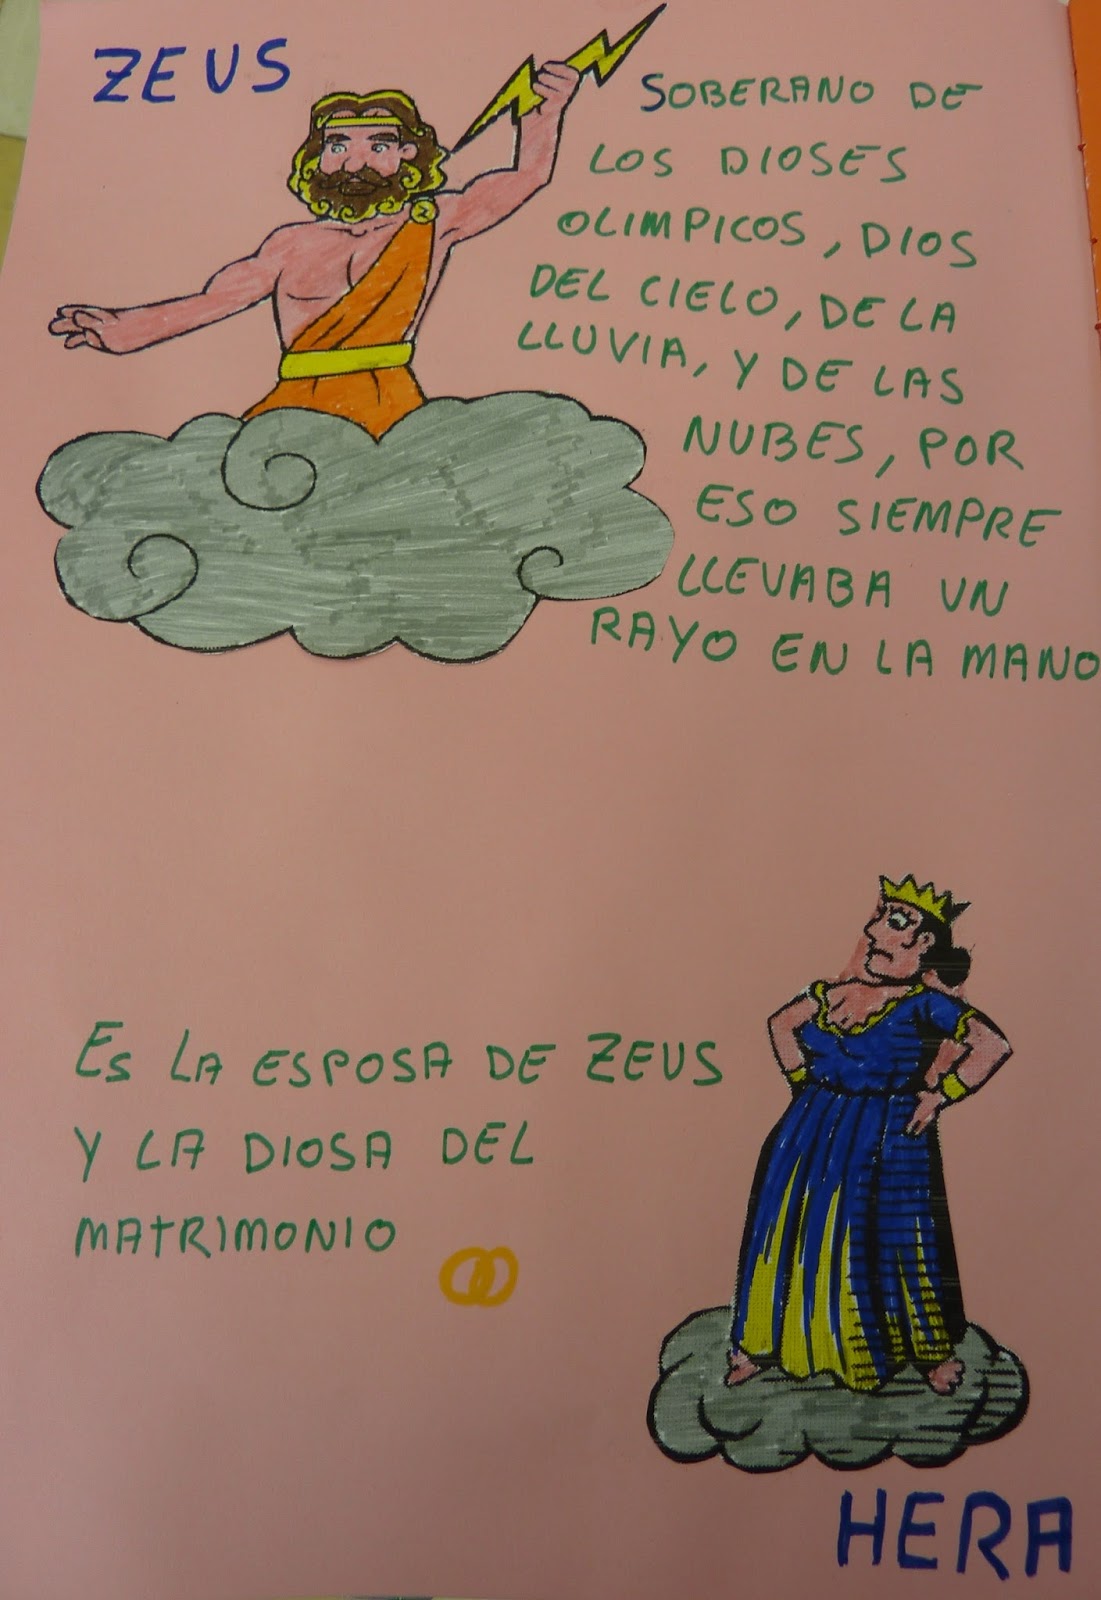 ZEUS
SOBERANO DE
LOS DIOSES
OLIMPICOS, DIOS
DEL CIELO, DE LA
LLUVIA, Y DE LAS
NUBES, POR
ESO SIEMPRE
LLEVABA UN
RAYO EN LA MANO
ES LA ESPOSA DE ZEUS
Y LA DIOSA DEL
MATRIMONIO
HERA